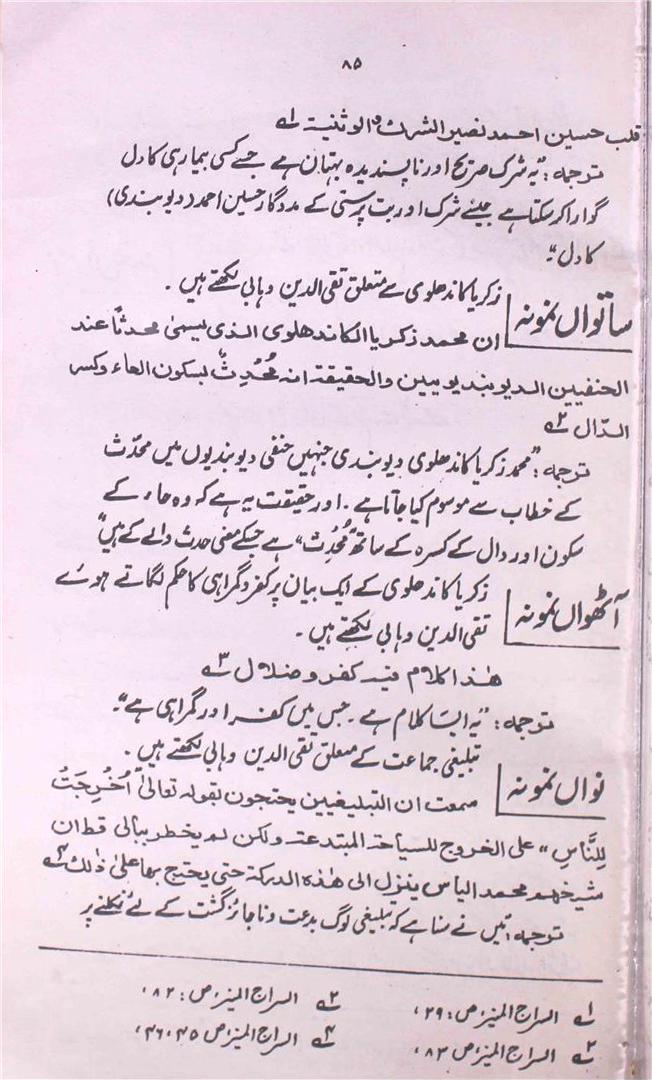 ۸۵
قلب حسین احمد نصیر الشرک والوثنیۃ ۱ے
ترجمہ: "یہ شرک صریح اور ناپسندیدہ بہتان ہے جسے کسی بیماری کا دل
گوارا کر سکتا ہے جیسے شرک اور بت پرستی کے مددگار حسین احمد (دیوبندی)
کا دل"۔
ساتواں نمونہ
زکریا کاندھلوی سے متعلق تقی الدین وہابی لکھتے ہیں۔
ان محمد زکریا الکاندھلوی الذی یسمیٰ محدثاً عند
الحنفیین الدیوبندیوبیین والحقیقۃ انہ مُحْدِثٌ بسکون الحاء وکسر
الدّال ۲ے
ترجمہ: "محمد زکریا کاندھلوی دیوبندی جنہیں حنفی دیوبندیوں میں محدّث
کے خطاب سے موسوم کیا جاتا ہے۔ اور حقیقت یہ ہے کہ وہ حاء کے
سکون اور دال کے کسرہ کے ساتھ "مُحْدِث" ہے جسکے معنی حدث والے کے ہیں"
آٹھواں نمونہ
زکریا کاندھلوی کے ایک بیان پر کفر و گمراہی کا حکم لگاتے ہوئے
تقی الدین وہابی لکھتے ہیں۔
ھٰذا کلام فیہ کفر و ضلال ۳ے
ترجمہ: "یہ ایسا کلام ہے۔ جس میں کفر اور گمراہی ہے"۔
نواں نمونہ
تبلیغی جماعت کے متعلق تقی الدین وہابی لکھتے ہیں۔
سمعت ان التبلیغیین یحتجون بقولہ تعالیٰ "اُخْرِجَتْ
لِلنَّاسِ" علی الخروج للسیاحۃ المبتدعۃ ولکن لم یخطر ببالی قط ان
شیخھم محمد الیاس ینزل الی ھٰذہ الدرکۃ حتی یحتج بھا علیٰ ذٰلک ۴ے
ترجمہ: "میں نے سنا ہے کہ تبلیغی لوگ بدعت و ناجائز گشت کے لئے نکلنے پر
۱ے السراج المنیر، ص: ۲۹،
۲ے السراج المنیر، ص: ۸۲،
۳ے السراج المنیر، ص: ۸۳،
۴ے السراج المنیر، ص: ۴۵، ۴۶،